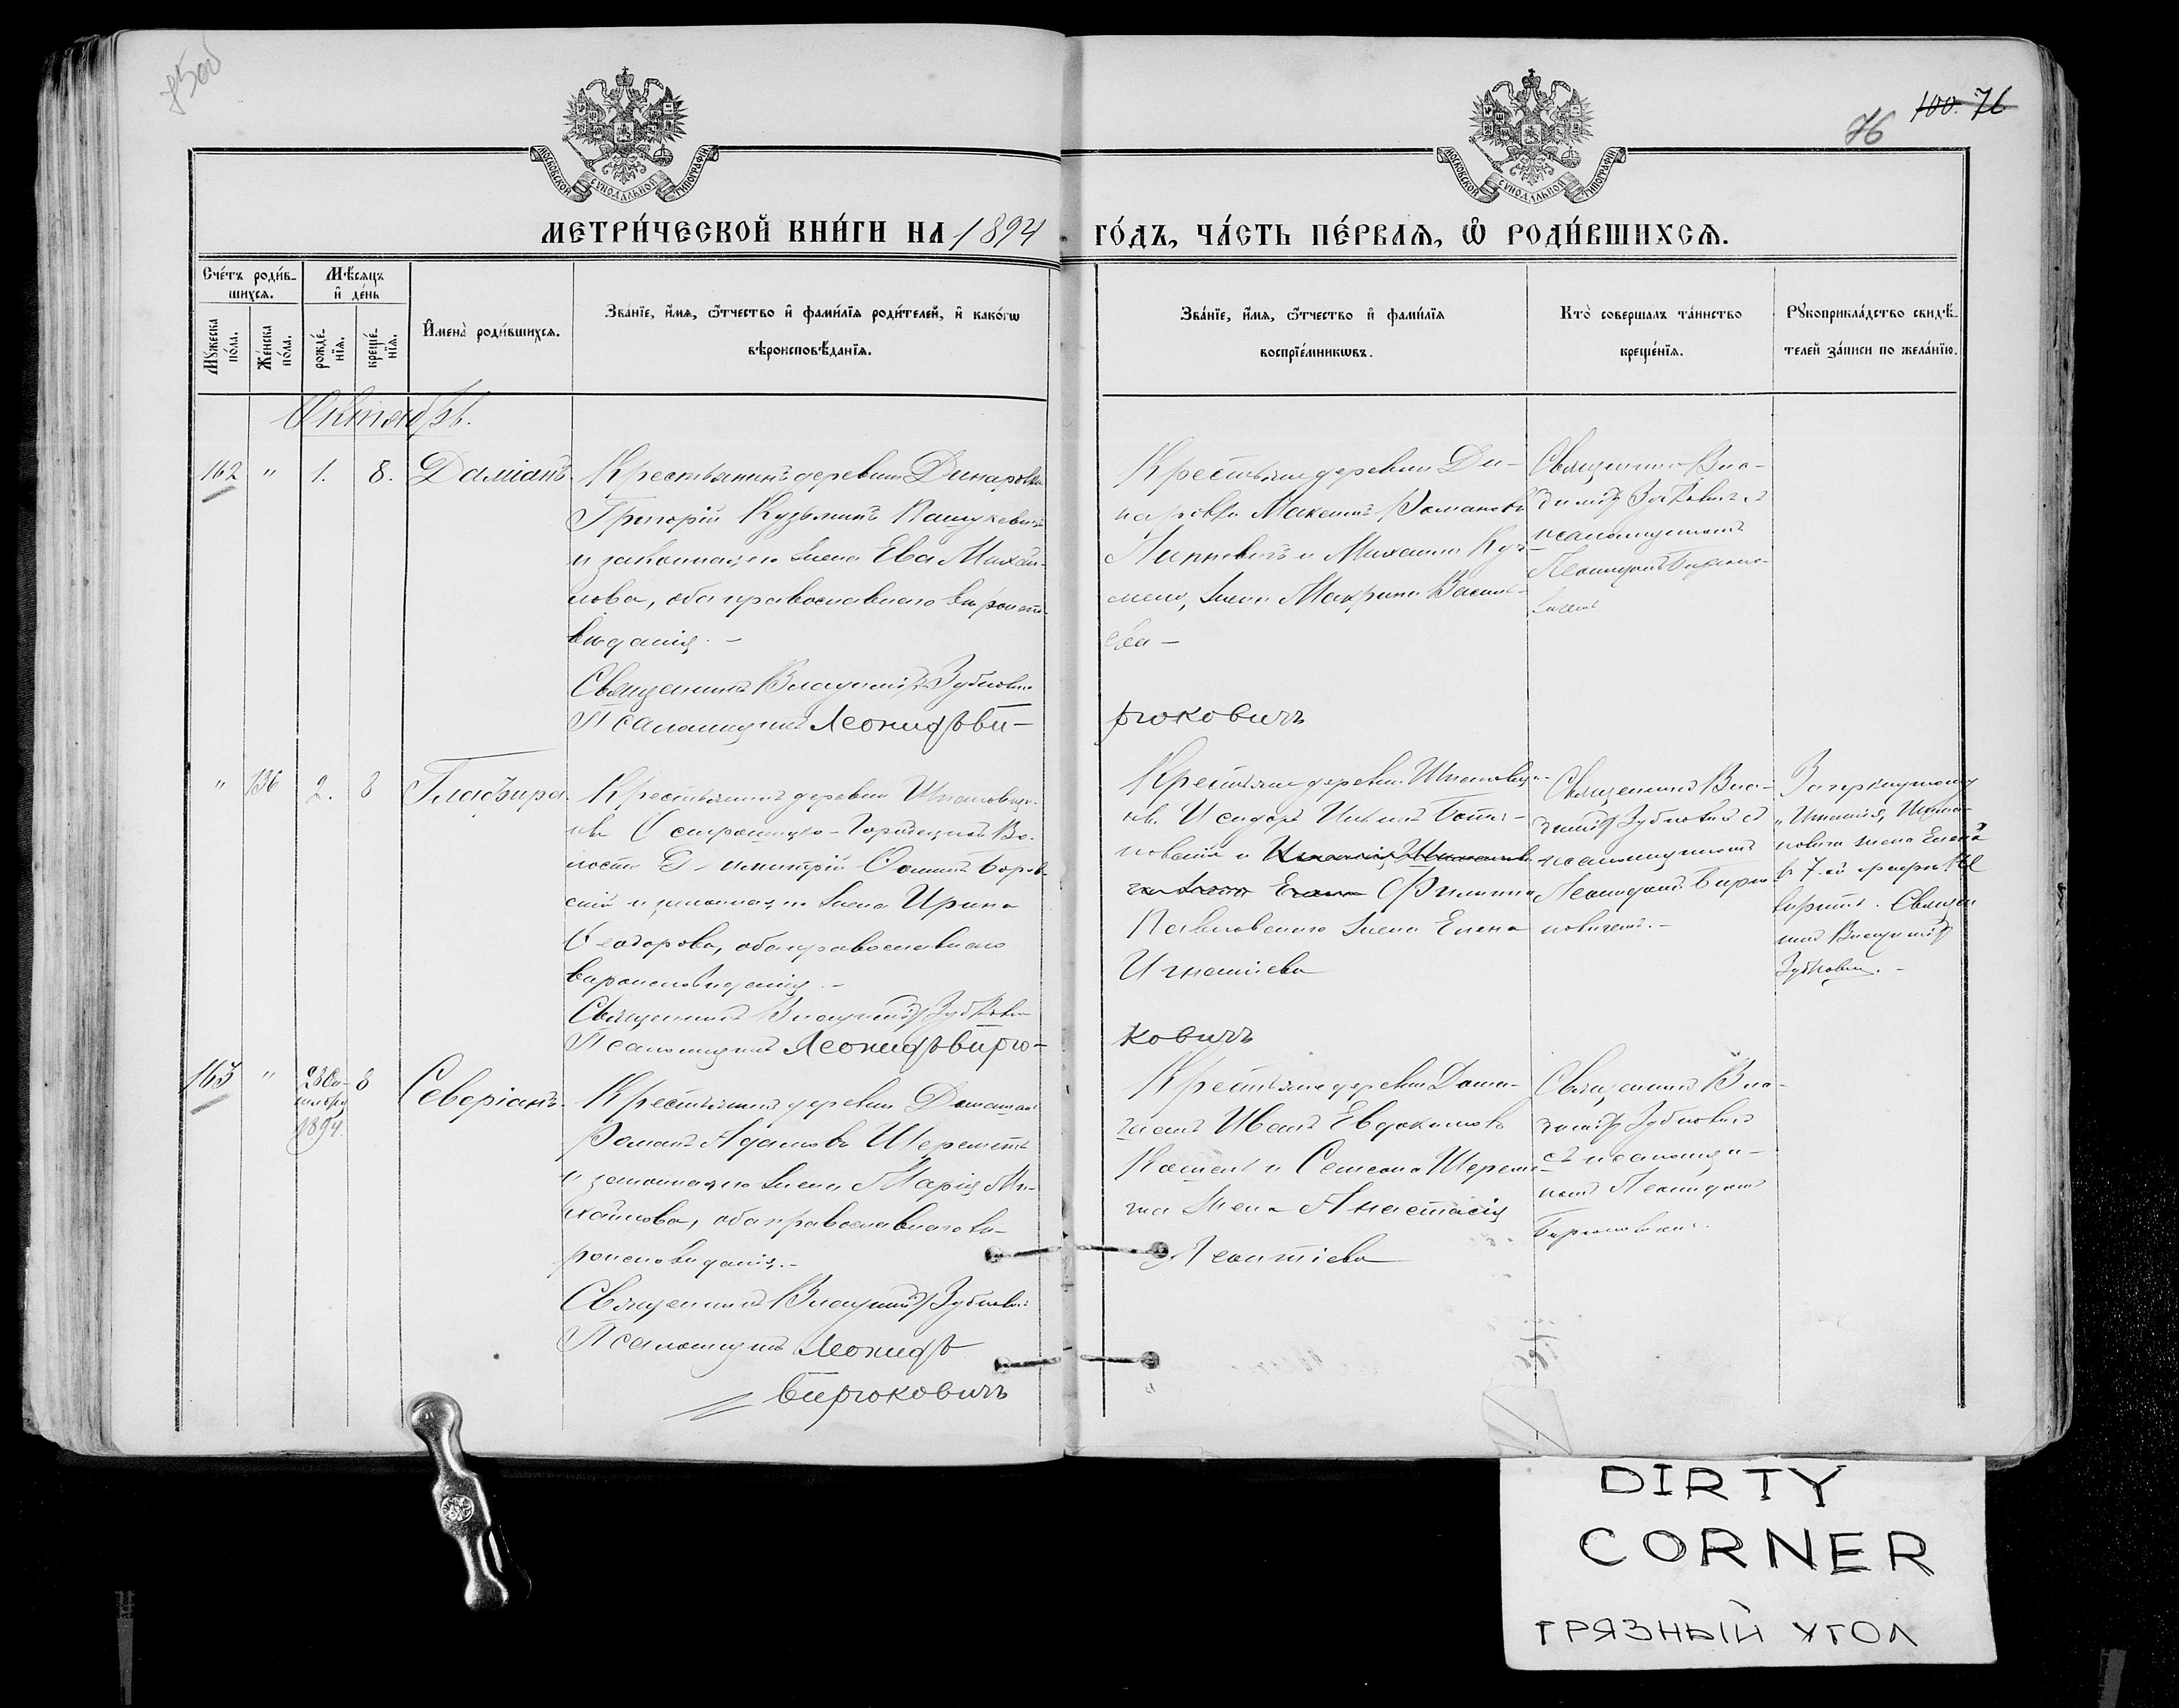 1500
76
100. 76
МОСКОВСКОЙ СѴНОДАЛЬНОЙ ТИПОГРАФІИ
МОСКОВСКОЙ СѴНОДАЛЬНОЙ ТИПОГРАФІИ
МЕТРИ́ЧЕСКОЙ КНИ́ГИ НА 1894 ГО́ДЪ, ЧА́СТЬ ПЕ́РВАЯ, Ѡ РОДИ́ВШИХСЯ.
Сче́тъ роди́в-
шихся.
Мѣ́сяцъ
и҆ де́нь
Мꙋжеска
по́ла.
Же́нска
по́ла.
рожде́-
нїя.
креще́-
нїя.
И҆мена̀ роди́вшихся.
Зва́нїе, и҆́мя, ѻ҆́тчество и҆ фами́лїя роди́телей, и҆ како́гѡ
вѣроисповѣ́данїя.
Зва́нїе, и҆́мя, ѻ҆́тчество и҆ фами́лїя
воспрїе́мникѡвъ.
Кто̀ соверша́лъ та́инство
креще́нїя.
Рꙋкоприкла́дство свидѣ́-
телей за́писи по жела́нїю.
Октябрь.
162 " 1. 8. Даміанъ.
Крестьянинъ деревни Динаровки
Григорій Кузьминъ Пашукевичъ
и законная его жена Ева Михай-
лова, оба православнаго вѣроиспо-
вѣданія. —
Священникъ Владиміръ Зубковичъ
Псаломщикъ Леонидъ Би-
Крестьяне деревни Ди-
наровки Максимъ Романовъ
и Михаила Кузь-
жена Макрина Василь-
ева —
рюковичъ
Священникъ Вла-
диміръ Зубковичъ съ
псаломщикомъ
Леонидомъ Бирюко-
вичемъ
" 136 2. 8 Глафира.
Крестьянинъ деревни
Острошицко-Городецкой Во-
лости Димитрій Боров-
скій и законная его жена Ирина
Ѳеодорова, оба православнаго
вѣроисповѣданія. —
Священникъ Владиміръ Зубковичъ
Псаломщикъ Леонидъ Бирю-
Крестьяне деревни
Исидоръ
и
Филиппа
Павловскаго жена Елена
Игнатіева
ковичъ
Священникъ Вла-
диміръ Зубковичъ съ
псаломщикомъ
Леонидомъ Бирю-
ковичемъ. —
Зачеркнутому
жена Елена"
въ 7-ой графѣ не
вѣрить. Священ-
никъ Владиміръ
Зубковичъ. —
163 " 28 Сен-
тября
1894. 8 Северіанъ.
Крестьянинъ деревни
Романъ Адамовъ Шереметъ
и законная его жена Марія Ми-
хайлова, оба православнаго вѣ-
роисповѣданія. —
Священникъ Владиміръ Зубковичъ
Псаломщикъ Леонидъ
Бирюковичъ
Крестьяне деревни
Иванъ Евдокимовъ
и Семеона Шереме-
та жена Анастасія
Леонтіева
Священникъ Вла-
диміръ Зубковичъ
съ псаломщи-
комъ Леонидомъ
Бирюковичемъ.
DIRTY
CORNER
ГРЯЗНЫЙ УГОЛ